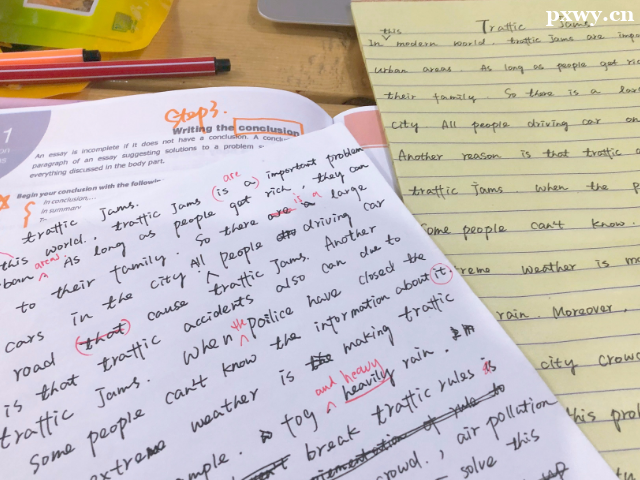 pxwy.cn
Traffic Jams
this
In modern world. traffic jams are impo
urban areas. As long as people got ric
their family. So there is a lar
city All people driving car on
Another reason is that traffic a
traffic jams when the p
Some people can't know.
reme weather is m
rain. Moreover,
city crowd
this prob
Step3.
Writing the conclusion
An essay is incomplete if it does not have a conclusion. A conclu
paragraph of an essay suggesting solutions to a problem
everything discussed in the body part.
1
Begin your conclusion with the followin
in conclusion,...
in summary
traffic jams.
are
this world. traffic jams (is a) important problem
urban areas As long as people got rich, they can
to their family. So there are is a large
cars in the city All people driving car
road that cause traffic jams. Another
is that traffic accidents also can due to
traffic jams. When the poilice have closed the
Some people can't know the information about it
extreme weather is making traffic
and heavy
fog heavily rain.
break traffic rules is
iementation of rule to
crowd., air pollution
solve this